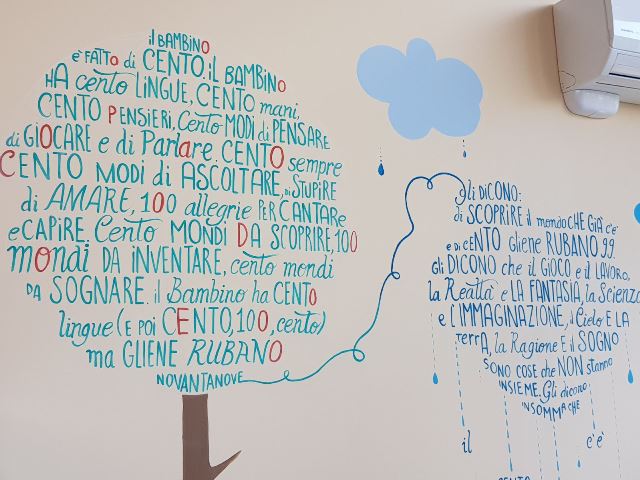 il BAMBINO
è FATTO di CENTO. iL BAMBINO
HA cento LINGUE, CENTO mani,
CENTO PENSIERI, Cento MODI di PENSARE
di GIOCARE e di Parlare. CENTO sempre
CENTO MODI di ASCOLTARE, di STUPIRE
di AMARE, 100 allegrie PER CANTARE
e CAPIRE. Cento MONDI DA SCOPRIRE, 100
mondi DA INVENTARE, cento mondi
DA SOGNARE. il Bambino ha CENTO
lingue (E poi CENTO, 100, cento)
ma GLIENE RUBANO
NOVANTANOVE
gli DICONO:
di SCOPRIRE il mondo CHE GIÀ c'è
E DI CENTO gliene RUBANO 99.
gli DICONO che il GIOCO e il LAVORO,
la Realtà e LA FANTASIA, la Scienza
e L'IMMAGINAZIONE, il Cielo E LA
terrA, la Ragione E il SOGNO
SONO COSE che NON stanno
INSIEME. Gli dicono
INSOMMA CHE
il c'è